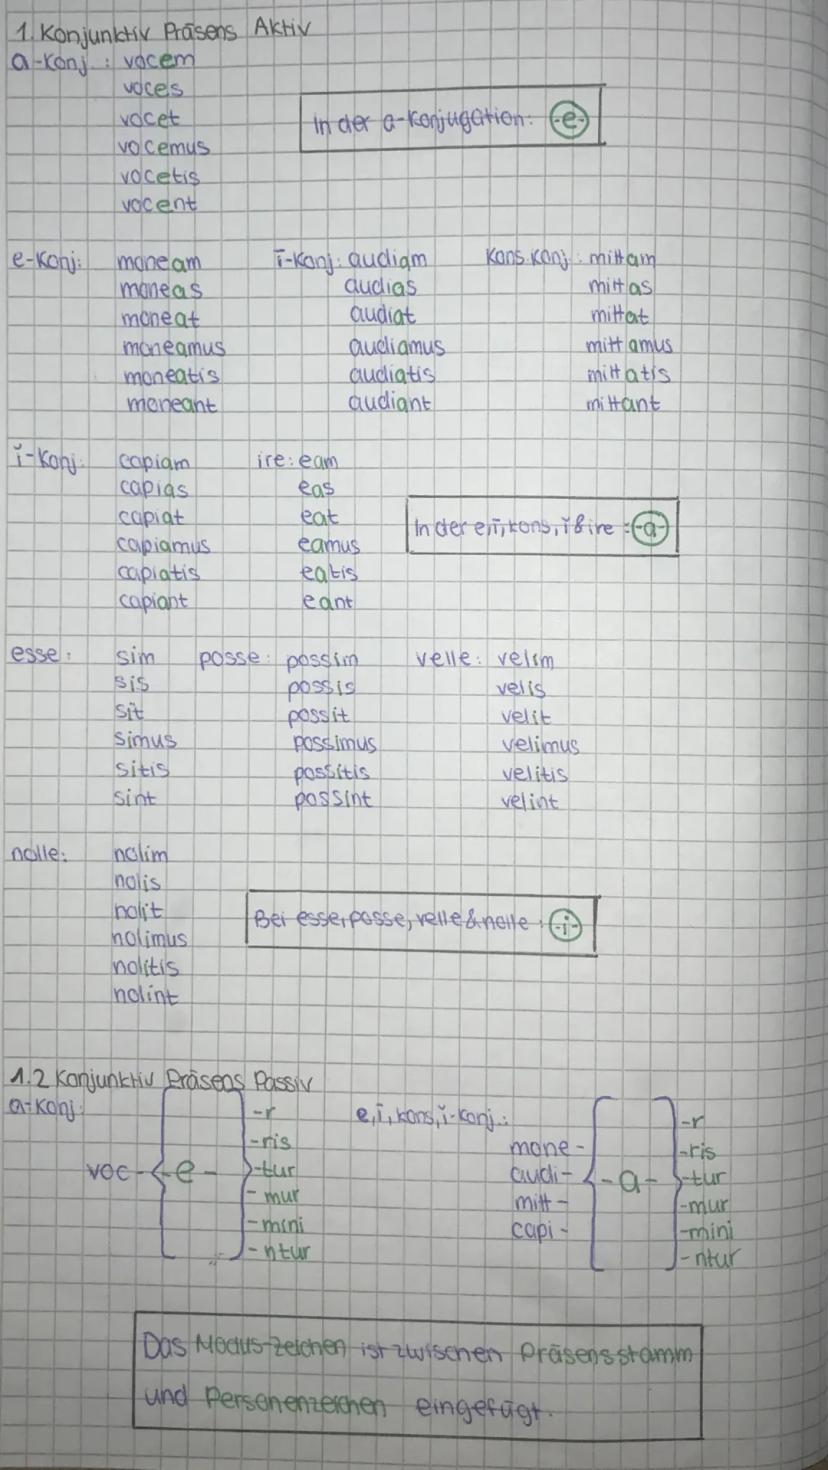 1. Konjunktiv Präsens Aktiv
a-Konj.: vocem
voces
vocet
vocemus
vocetis
vocent
In der a-Konjugation: -e-
e-Konj: moneam
moneas
moneat
moneamus
moneatis
moneant
ī-Konj: audiam
audias
audiat
audiamus
audiatis
audiant
Kons. Konj.: mittam
mittas
mittat
mittamus
mittatis
mittant
ĭ-Konj: capiam
capias
capiat
capiamus
capiatis
capiant
ire: eam
eas
eat
eamus
eatis
eant
In der e, ī, kons, ĭ & ire: -a-
esse: sim
sis
sit
simus
sitis
sint
posse: possim
possis
possit
possimus
possitis
possint
velle: velim
velis
velit
velimus
velitis
velint
nolle: nolim
nolis
nolit
nolimus
nolitis
nolint
Bei esse, posse, velle & nolle: -i-
1.2 Konjunktiv Präsens Passiv
a-Konj:
voc- -e-
-r
-ris
-tur
-mur
-mini
-ntur
e, ī, kons, ĭ-Konj.:
mone-
audi-
mitt-
capi-
-a-
-r
-ris
-tur
-mur
-mini
-ntur
Das Modus-Zeichen ist zwischen Präsensstamm
und Personenzeichen eingefügt.